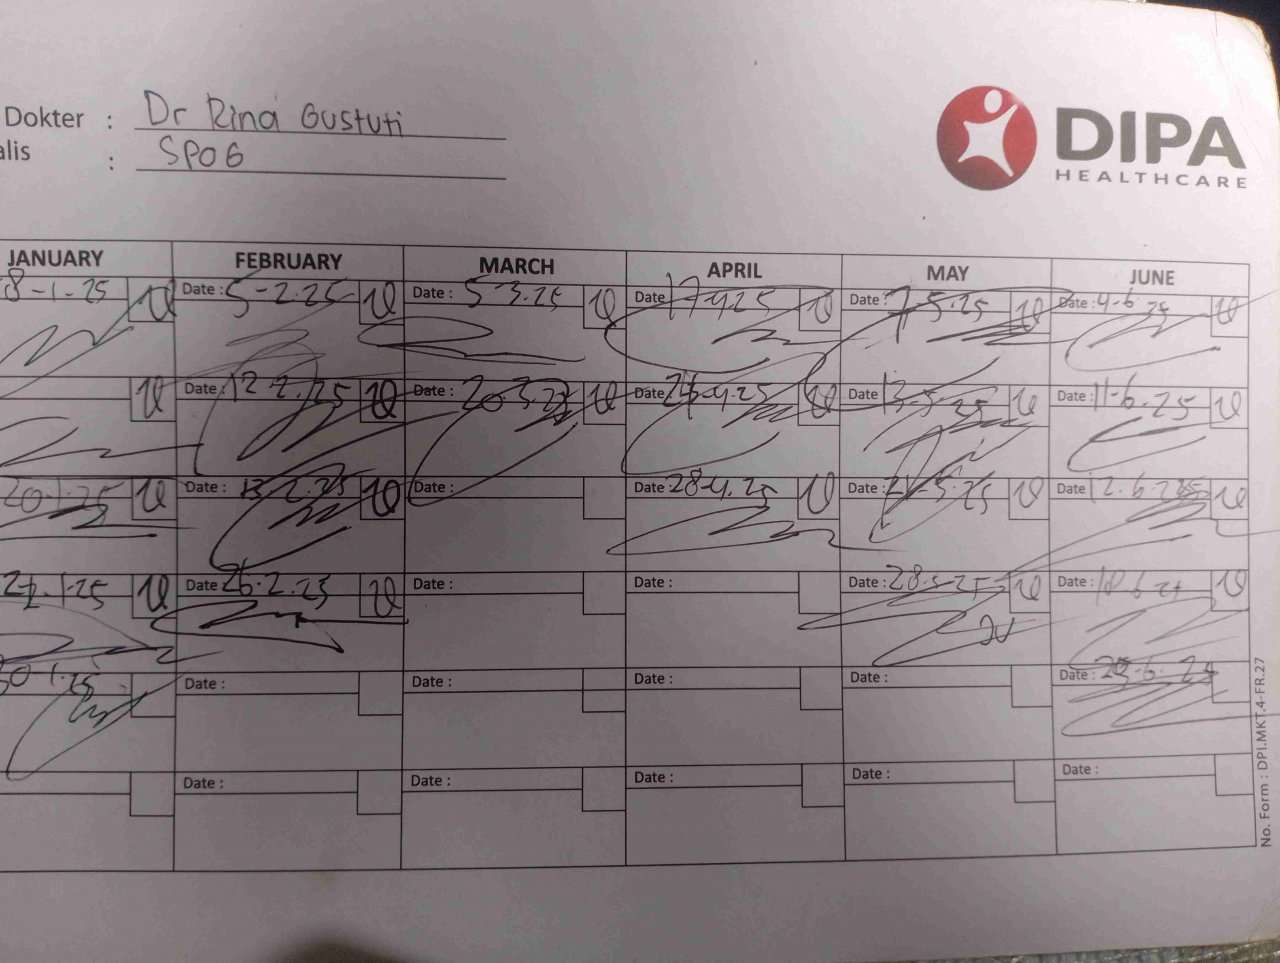 Dokter : Dr Rina Gustuti
alis : SPOG
DIPA
HEALTHCARE
JANUARY FEBRUARY MARCH APRIL MAY JUNE
8-1-25 Date : 5-2.25 Date : 5 3.25 Date 17-4.25 Date : 7-5.25 Date : 4-6 25
Date : 12-2.25 Date : 20.3.25 Date 24-4.25 Date 13-5-25 Date : 11-6.25
20-1.25 Date : 13.2.25 Date : Date 28-4.25 Date : 21-5.25 Date 12.6.25
27.1-25 Date 26.2.25 Date : Date : Date : 28-5-25 Date : 18-6-25
30-1.25 Date : Date : Date : Date : Date : 25-6.25
Date : Date : Date : Date : Date :
No. Form : DPI.MKT.4-FR.27